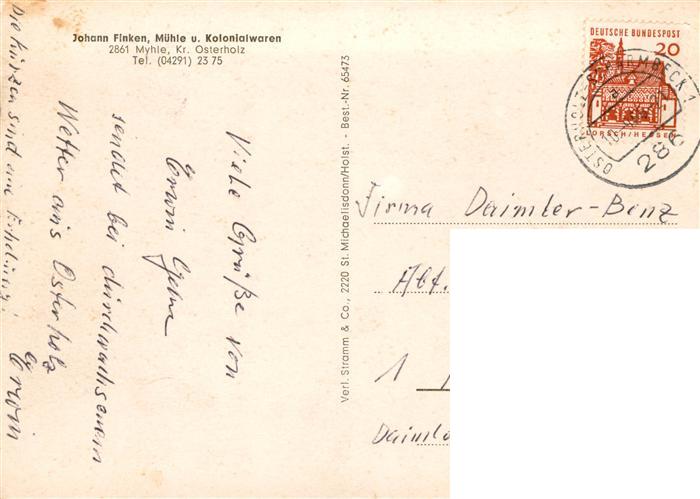 Johann Finken, Mühle u. Kolonialwaren
2861 Myhle, Kr. Osterholz
Tel. (04291) 23 75
Viele Grüße von
Erwin
sendet bei durchwachsenem
Wetter aus Osterholz
Erwin
Die Kürzen sind eine
Verl. Stramm & Co., 2220 St. Michaelisdonn/Holst. - Best.-Nr. 65473
DEUTSCHE BUNDESPOST
20
LORSCH/HESSEN
286
Firma Daimler-Benz
Abt.
1
Daimle